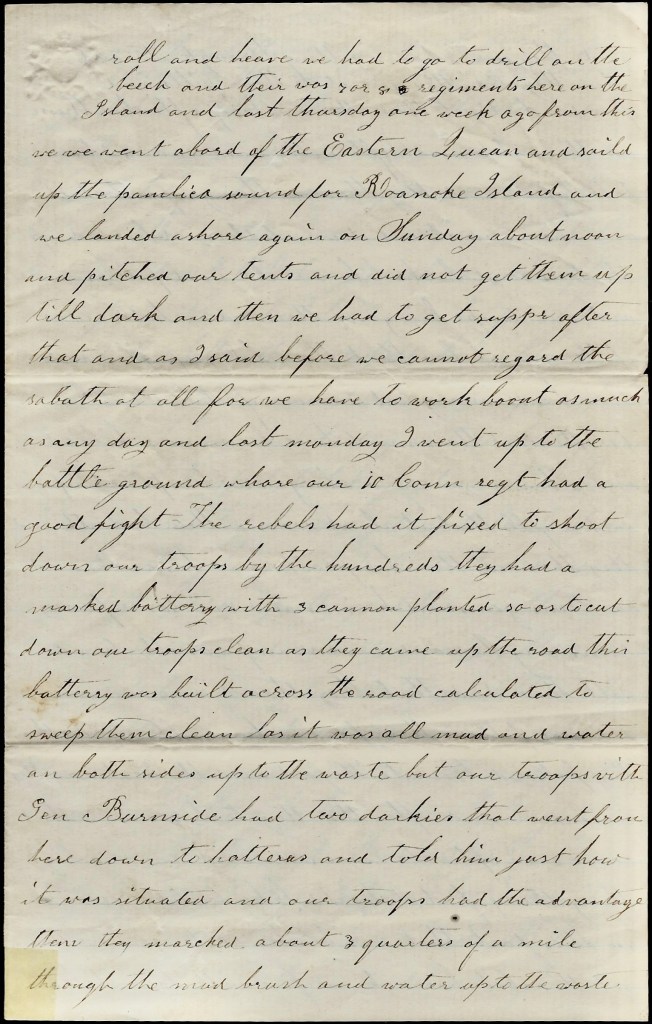 roll and heave we had to go to drill on the
beech and their was 7 or 8 regiments here on the
Island and last thursday one week ago from this
we we went abord of the Eastern Quean and saild
up the pamlico sound for Roanoke Island and
we landed ashore again on Sunday about noon
and pitched our tents and did not get them up
till dark and then we had to get suppr after
that and as I said before we cannot regard the
sabath at all for we have to work boout as much
as any day and last monday I went up to the
battle ground whare our 10 Conn regt had a
good fight The rebels had it fixed to shoot
down our troops by the hundreds they had a
masked battorry with 3 cannon planted so as to cut
down our troops clean as they came up the road this
batterry was built across the road calculated to
sweep them clean as it was all mud and water
on both sides up to the waste but our troops with
Gen Burnside had two darkies that went from
here down to hatteras and told him just how
it was situated and our troops had the advantage
then they marched about 3 quarters of a mile
through the mud brush and water up to the waste